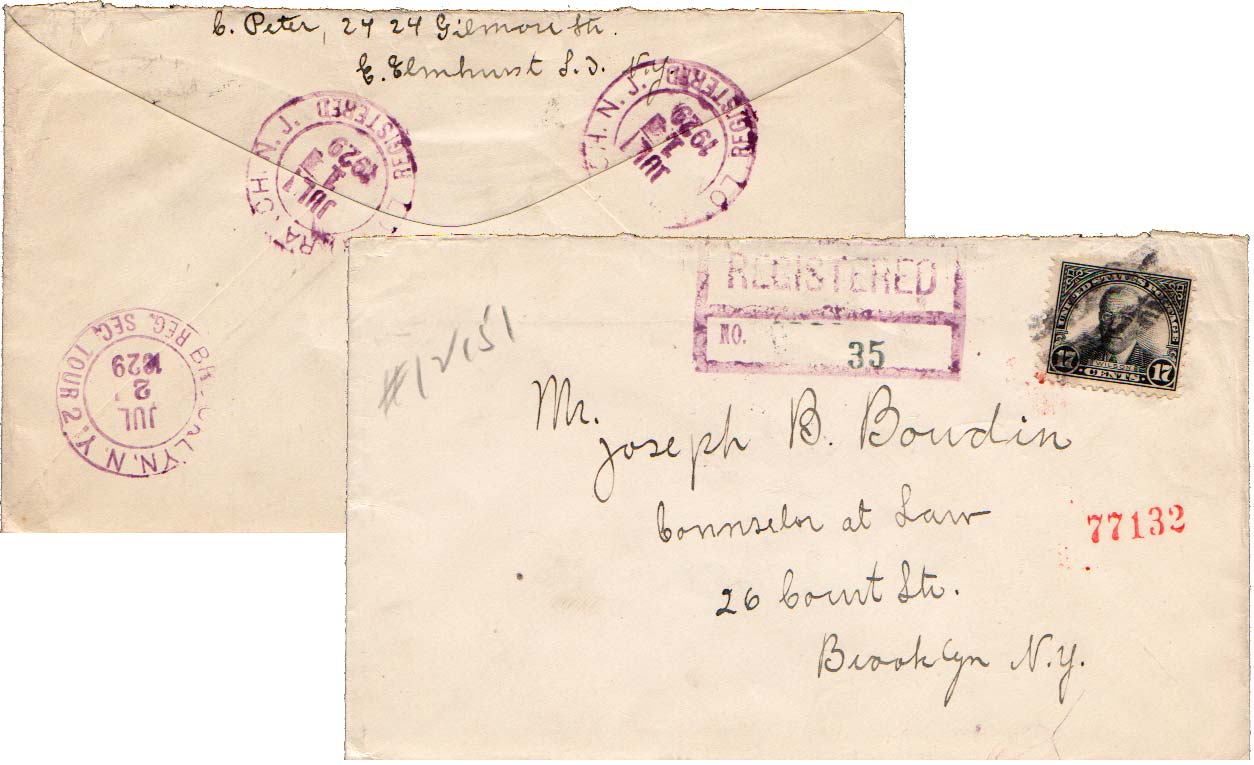 C. Peter, 24 24 Gilmore Str.
E. Elmhurst L.I. N.Y.
CH. N. J. REGISTERED
JUL
1
1929
CH. N. J. REGISTERED
JUL
1
1929
BROOKLYN, N.Y. REG. SEC. TOUR 2
JUL
2
1929
REGISTERED
NO. 35
#12151
UNITED STATES POSTAGE
WILSON
17 CENTS 17
Mr.
Joseph B. Boudin
Counselor at Law
26 Court Str.
Brooklyn N.Y.
77132